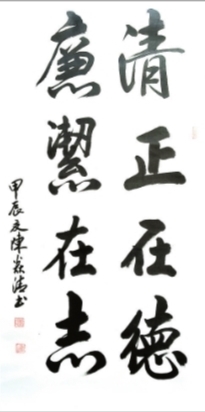 清正在德
廉潔在志
甲辰文陳焱清書